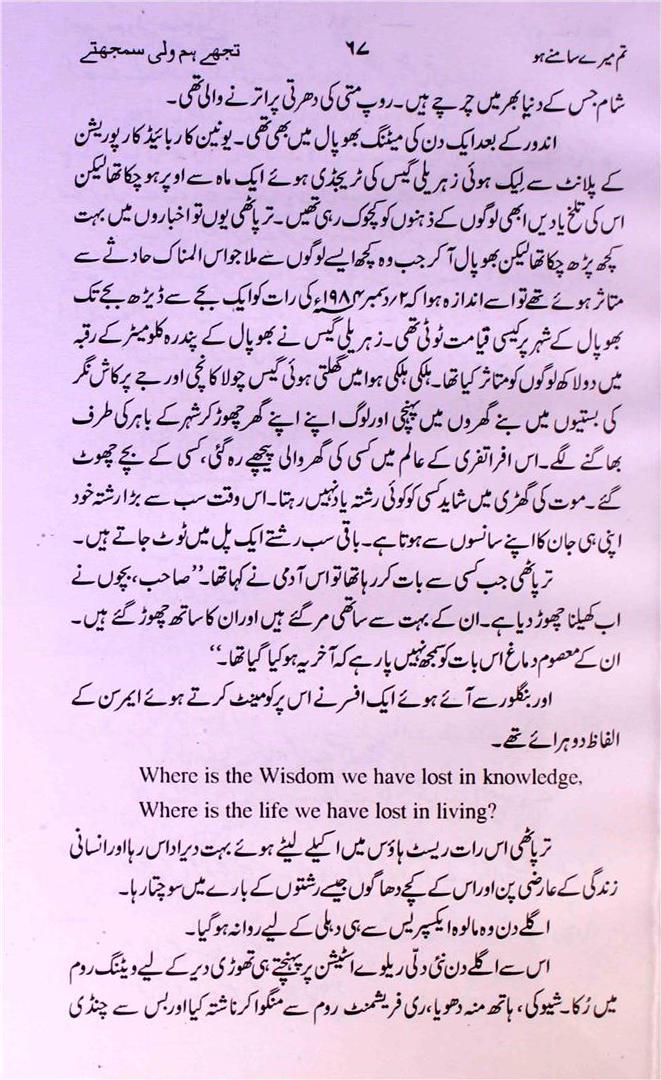 تم میرے سامنے ہو ۶۷ تجھے ہم ولی سمجھتے
شام جس کے دنیا بھر میں چرچے ہیں۔ روپ متی کی دھرتی پر اترنے والی تھی۔
اندور کے بعد ایک دن کی میٹنگ بھوپال میں بھی تھی۔ یونین کاربائیڈ کارپوریشن
کے پلانٹ سے لیک ہوئی زہریلی گیس کی ٹریجڈی ہوئے ایک ماہ سے اوپر ہو چکا تھا لیکن
اس کی تلخ یادیں ابھی لوگوں کے ذہنوں کو کچوک رہی تھیں۔ ترپاٹھی یوں تو اخباروں میں بہت
کچھ پڑھ چکا تھا لیکن بھوپال آ کر جب وہ کچھ ایسے لوگوں سے ملا جو اس المناک حادثے سے
متاثر ہوئے تھے تو اسے اندازہ ہوا کہ ۲؍ دسمبر ۱۹۸۴ء کی رات کو ایک بجے سے ڈیڑھ بجے تک
بھوپال کے شہر پر کیسی قیامت ٹوٹی تھی۔ زہریلی گیس نے بھوپال کے پندرہ کلومیٹر کے رقبہ
میں دو لاکھ لوگوں کو متاثر کیا تھا۔ ہلکی ہلکی ہوا میں گھلتی ہوئی گیس چولا کانچی اور جے پرکاش نگر
کی بستیوں میں بنے گھروں میں پہنچی اور لوگ اپنے اپنے گھر چھوڑ کر شہر کے باہر کی طرف
بھاگنے لگے۔ اس افراتفری کے عالم میں کسی کی گھر والی پیچھے رہ گئی، کسی کے بچے چھوٹ
گئے۔ موت کی گھڑی میں شاید کسی کو کوئی رشتہ یاد نہیں رہتا۔ اس وقت سب سے بڑا رشتہ خود
اپنی ہی جان کا اپنے سانسوں سے ہوتا ہے۔ باقی سب رشتے ایک پل میں ٹوٹ جاتے ہیں۔
ترپاٹھی جب کسی سے بات کر رہا تھا تو اس آدمی نے کہا تھا۔ ”صاحب، بچوں نے
اب کھیلنا چھوڑ دیا ہے۔ ان کے بہت سے ساتھی مر گئے ہیں اور ان کا ساتھ چھوڑ گئے ہیں۔
ان کے معصوم دماغ اس بات کو سمجھ نہیں پا رہے کہ آخر یہ ہو کیا گیا تھا۔“
اور بنگلور سے آئے ہوئے ایک افسر نے اس پر کومینٹ کرتے ہوئے ایمرسن کے
الفاظ دوہرائے تھے۔
Where is the Wisdom we have lost in knowledge,
Where is the life we have lost in living?
ترپاٹھی اس رات ریسٹ ہاؤس میں اکیلے لیٹے ہوئے بہت دیر اداس رہا اور انسانی
زندگی کے عارضی پن اور اس کے کچے دھاگوں جیسے رشتوں کے بارے میں سوچتا رہا۔
اگلے دن وہ مالوہ ایکسپریس سے ہی دہلی کے لیے روانہ ہو گیا۔
اس سے اگلے دن نئی دلّی ریلوے اسٹیشن پر پہنچتے ہی تھوڑی دیر کے لیے ویٹنگ روم
میں رُکا۔ شیو کی، ہاتھ منہ دھویا، ری فریشمنٹ روم سے منگوا کر ناشتہ کیا اور بس سے چنڈی